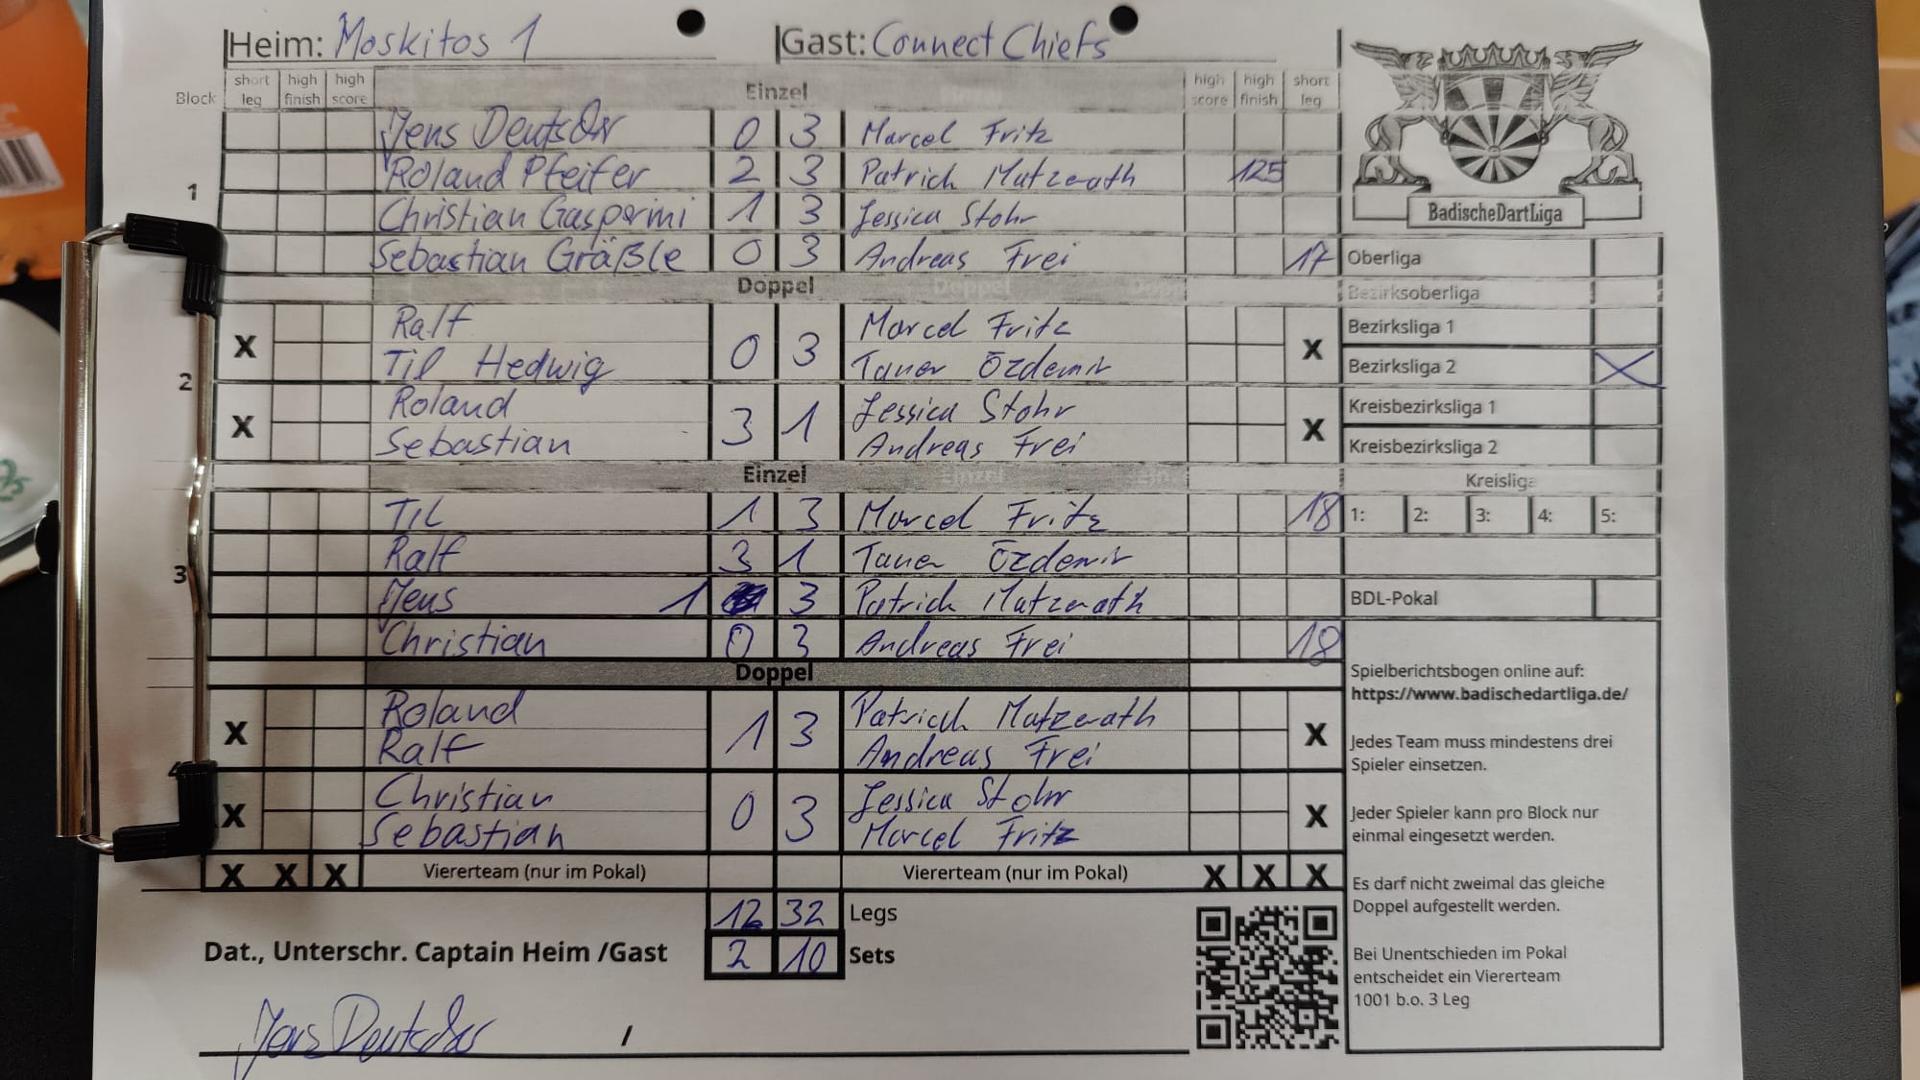 Heim: Moskitos 1 Gast: Connect Chiefs
Block short leg high finish high score Einzel high score high finish short leg
Jens Deutscher 0 3 Marcel Fritz
1 Roland Pfeifer 2 3 Patrick Matzerath 125
Christian Gasparini 1 3 Jessica Stohr
Sebastian Gräßle 0 3 Andreas Frei 17
Doppel
2
X Ralf 0 3 Marcel Fritz X
Til Hedwig Taner Özdemir
X Roland 3 1 Jessica Stohr X
Sebastian Andreas Frei
Einzel
3
Til 1 3 Marcel Fritz 18
Ralf 3 1 Taner Özdemir
Jens 1 3 Patrick Matzerath
Christian 0 3 Andreas Frei 18
Doppel
X Roland 1 3 Patrick Matzerath X
Ralf Andreas Frei
X Christian 0 3 Jessica Stohr X
Sebastian Marcel Fritz
X X X Viererteam (nur im Pokal) Viererteam (nur im Pokal) X X X
12 32 Legs
Dat., Unterschr. Captain Heim /Gast 2 10 Sets
Jens Deutscher /
BadischeDartLiga
Oberliga
Bezirksoberliga
Bezirksliga 1
Bezirksliga 2 X
Kreisbezirksliga 1
Kreisbezirksliga 2
Kreisliga
1: 2: 3: 4: 5:
BDL-Pokal
Spielberichtsbogen online auf:
https://www.badischedartliga.de/
Jedes Team muss mindestens drei
Spieler einsetzen.
Jeder Spieler kann pro Block nur
einmal eingesetzt werden.
Es darf nicht zweimal das gleiche
Doppel aufgestellt werden.
Bei Unentschieden im Pokal
entscheidet ein Viererteam
1001 b.o. 3 Leg